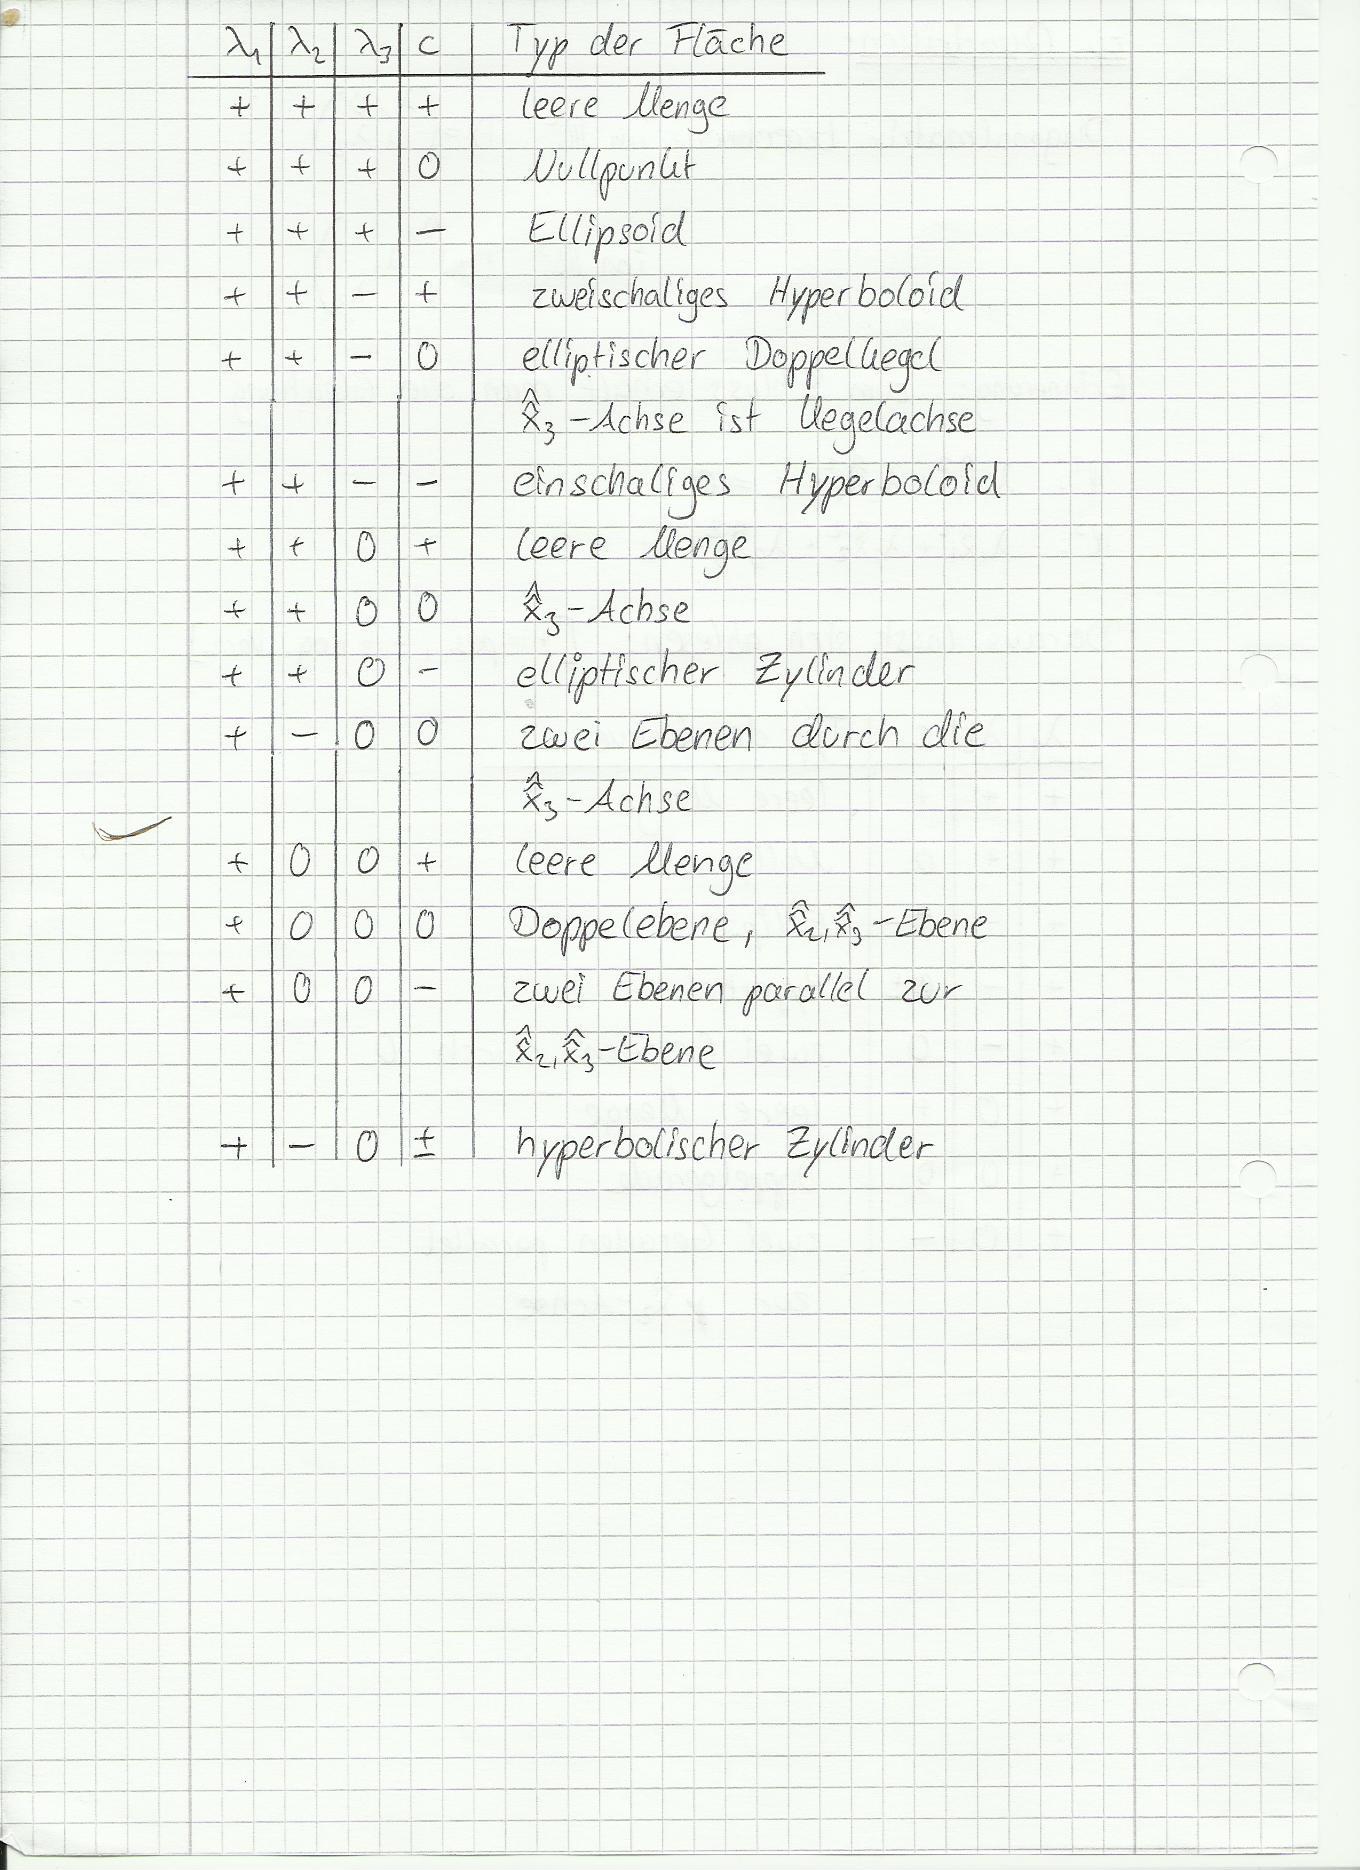 λ₁ | λ₂ | λ₃ | c | Typ der Fläche
+ | + | + | + | leere Menge
+ | + | + | 0 | Nullpunkt
+ | + | + | − | Ellipsoid
+ | + | − | + | zweischaliges Hyperboloid
+ | + | − | 0 | elliptischer Doppelkegel
x̂̂₃-Achse ist Kegelachse
+ | + | − | − | einschaliges Hyperboloid
+ | + | 0 | + | leere Menge
+ | + | 0 | 0 | x̂̂₃-Achse
+ | + | 0 | − | elliptischer Zylinder
+ | − | 0 | 0 | zwei Ebenen durch die
x̂̂₃-Achse
+ | 0 | 0 | + | leere Menge
+ | 0 | 0 | 0 | Doppelebene, x̂̂₂,x̂̂₃-Ebene
+ | 0 | 0 | − | zwei Ebenen parallel zur
x̂̂₂,x̂̂₃-Ebene
+ | − | 0 | ± | hyperbolischer Zylinder